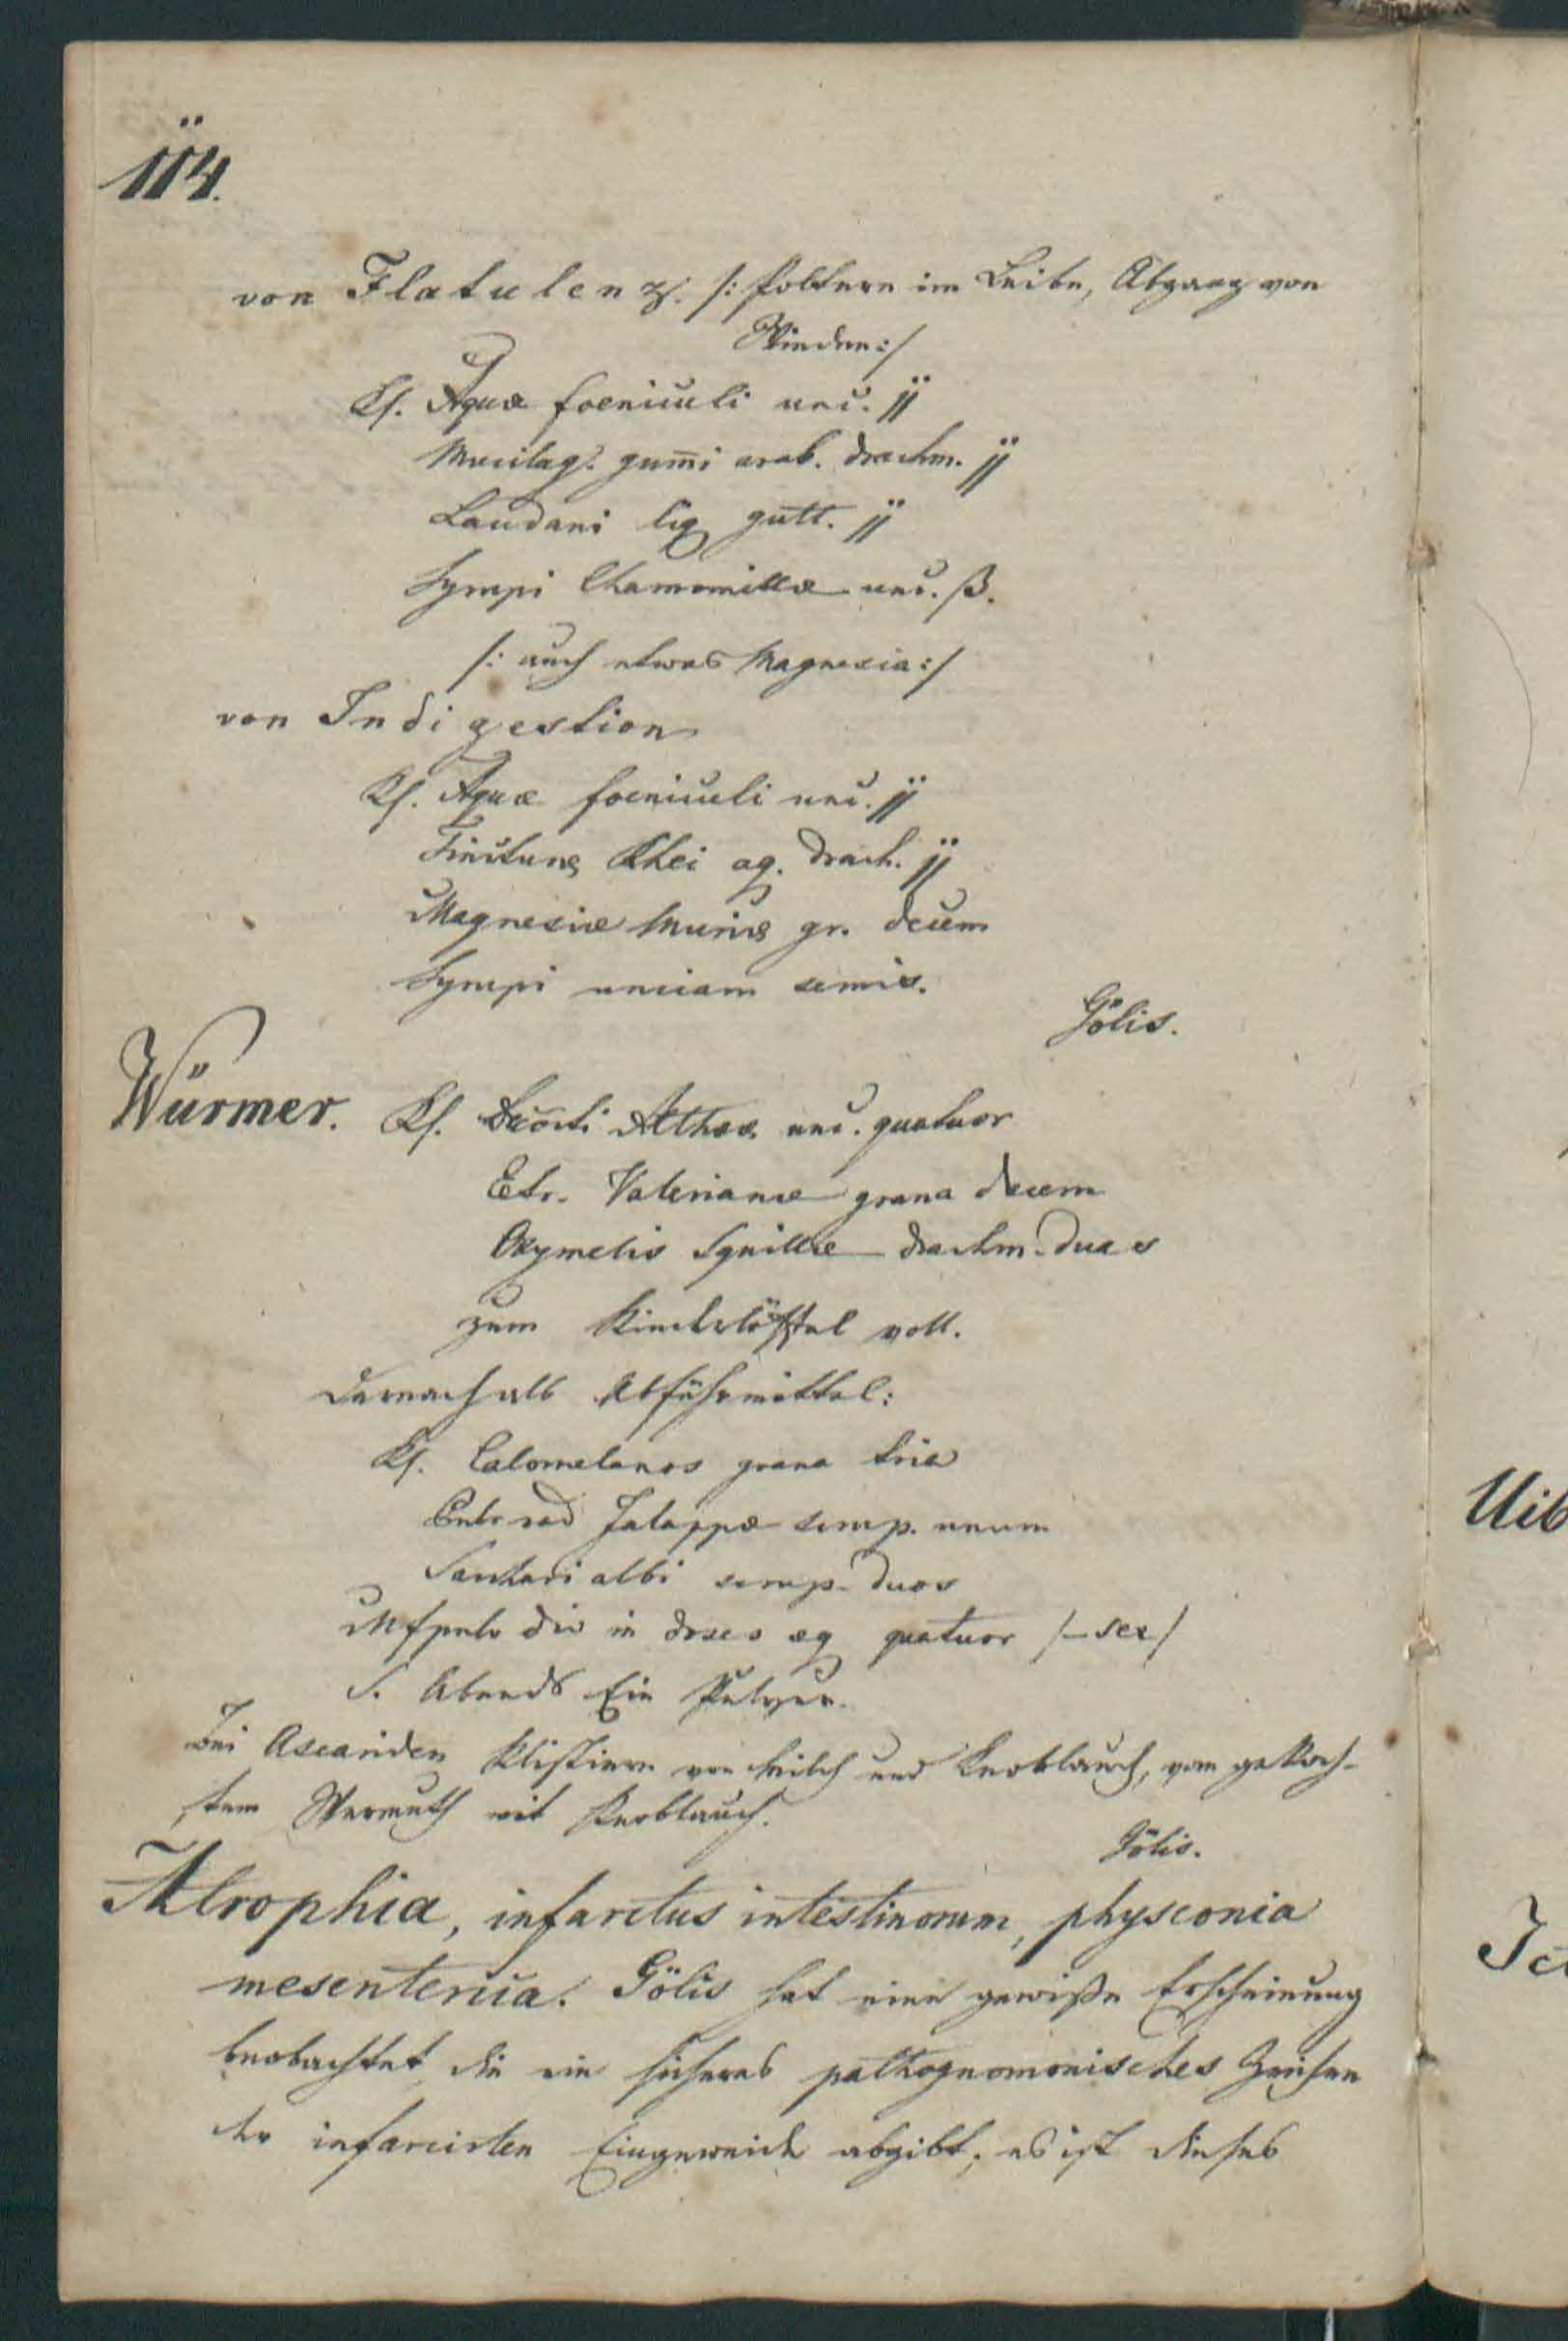 114.
von Flatulenz. /: Poltern im Leibe, Abgang von
Winden :/
Rf. Aquæ foeniculi unc. ij
Mucilag. gum̄i arab. drachm. ij
Laudani liq gutt. ij
Syrupi Chamomillæ unc. ß.
/: auch etwas Magnesia :/
von Indigestion
Rf. Aquæ foeniculi unc. ij
Tinctura Rhei aq. drach. ij
Magnesiæ Muriæ gr. decem
Syrupi unciam semis.
Gölis.
Würmer. Rf. Decocti Altheæ unc. quatuor
Extr. Valerianæ grana decem
Oxymelis Squillæ drachm. duas
zum Kinderlöffel voll.
Darnach als Abführmittel:
Rf. Calomelanos grana tria
Pulv rad Jalappæ scrup. unum
Sacchari albi scrup. duos
Mf pulv div in doses æq quatuor /– sex /
S. Abends Ein Pulver.
Bei Ascariden Klistiere von Milch und Knoblauch, von gekoch-
tem Wermuth mit Knoblauch.
Gölis.
Atrophia, infarctus intestinorum, physconia
mesenterica. Gölis hat eine gewiße Erscheinung
beobachtet die ein sicheres pathognomonisches Zeichen
der infarcirten Eingeweide abgibt; es ist dieses
Uib